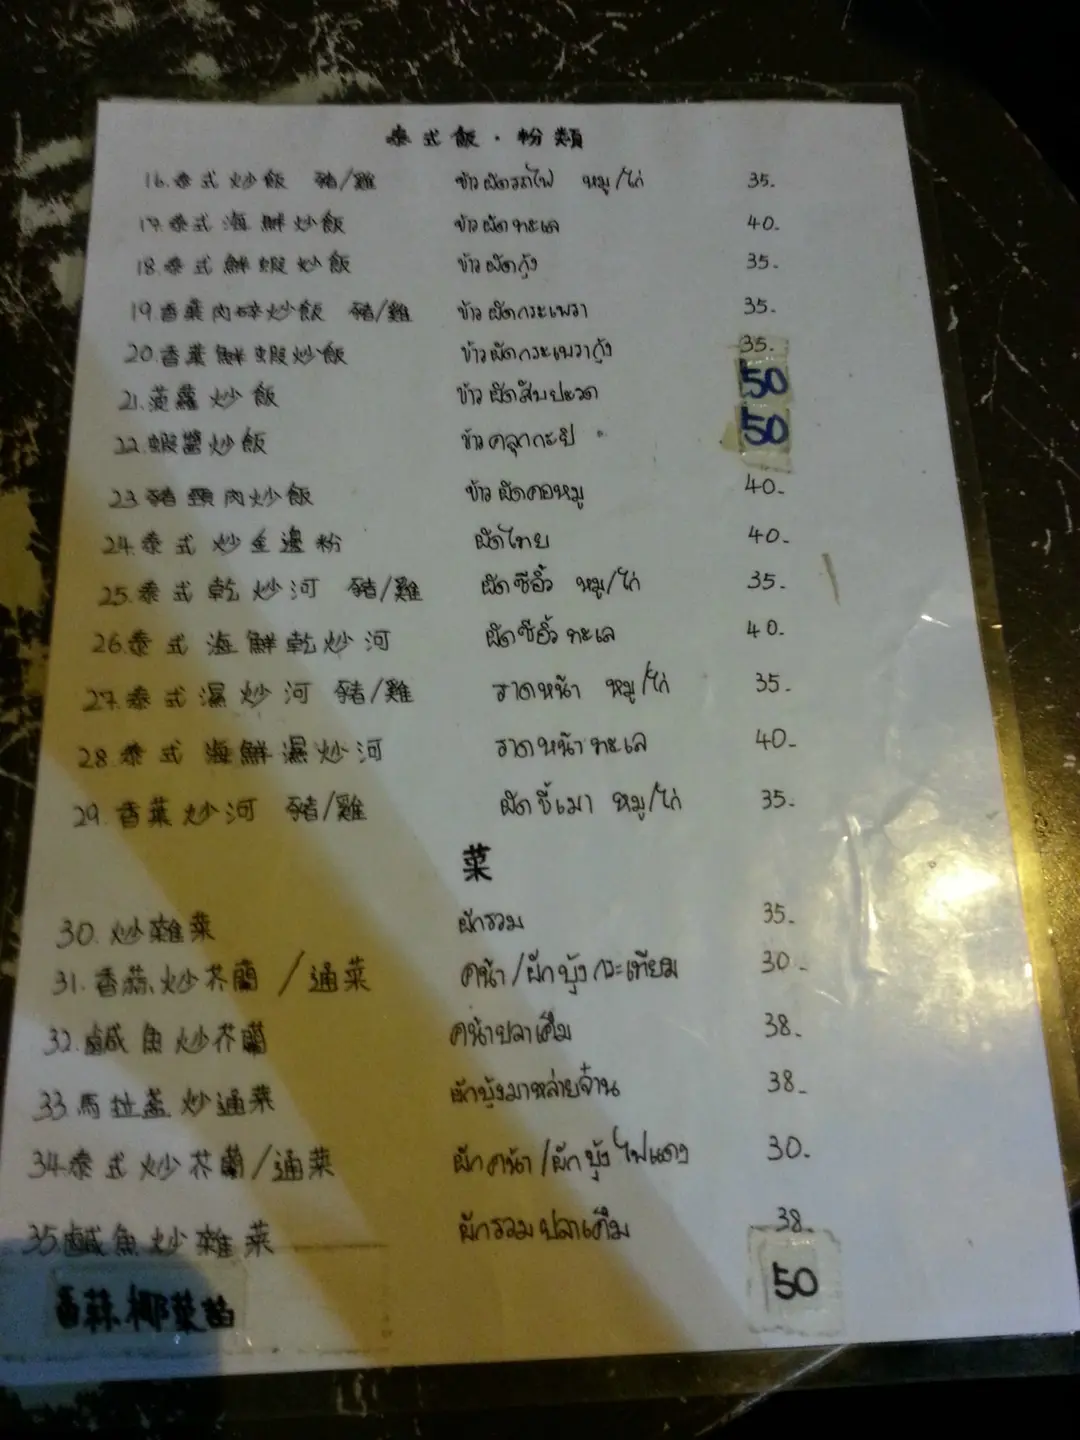 泰式飯·粉類
16.泰式炒飯 豬/雞 ข้าวผัดรถไฟ หมู/ไก่ 35.
17.泰式海鮮炒飯 ข้าวผัดทะเล 40.
18.泰式鮮蝦炒飯 ข้าวผัดกุ้ง 35.
19.香葉肉碎炒飯 豬/雞 ข้าวผัดกระเพรา 35.
20.香葉鮮蝦炒飯 ข้าวผัดกระเพรากุ้ง 35.
21.菠蘿炒飯 ข้าวผัดสับปะรด 50
22.蝦醬炒飯 ข้าวคลุกกะปิ 50
23.豬頸肉炒飯 ข้าวผัดคอหมู 40.
24.泰式炒金邊粉 ผัดไทย 40.
25.泰式乾炒河 豬/雞 ผัดซีอิ้ว หมู/ไก่ 35.
26.泰式海鮮乾炒河 ผัดซีอิ้วทะเล 40.
27.泰式濕炒河 豬/雞 ราดหน้า หมู/ไก่ 35.
28.泰式海鮮濕炒河 ราดหน้าทะเล 40.
29.香葉炒河 豬/雞 ผัดขี้เมา หมู/ไก่ 35.
菜
30.炒雜菜 ผักรวม 35.
31.香蒜炒芥蘭/通菜 คน้า/ผักบุ้งกระเทียม 30.
32.鹹魚炒芥蘭 คน้าปลาเค็ม 38.
33.馬拉盞炒通菜 ผักบุ้งมาหล่ายจ๋าน 38.
34.泰式炒芥蘭/通菜 ผักคน้า/ผักบุ้งไฟแดง 30.
35.鹹魚炒雜菜 ผักรวมปลาเค็ม 38.
香蒜椰菜苗 50